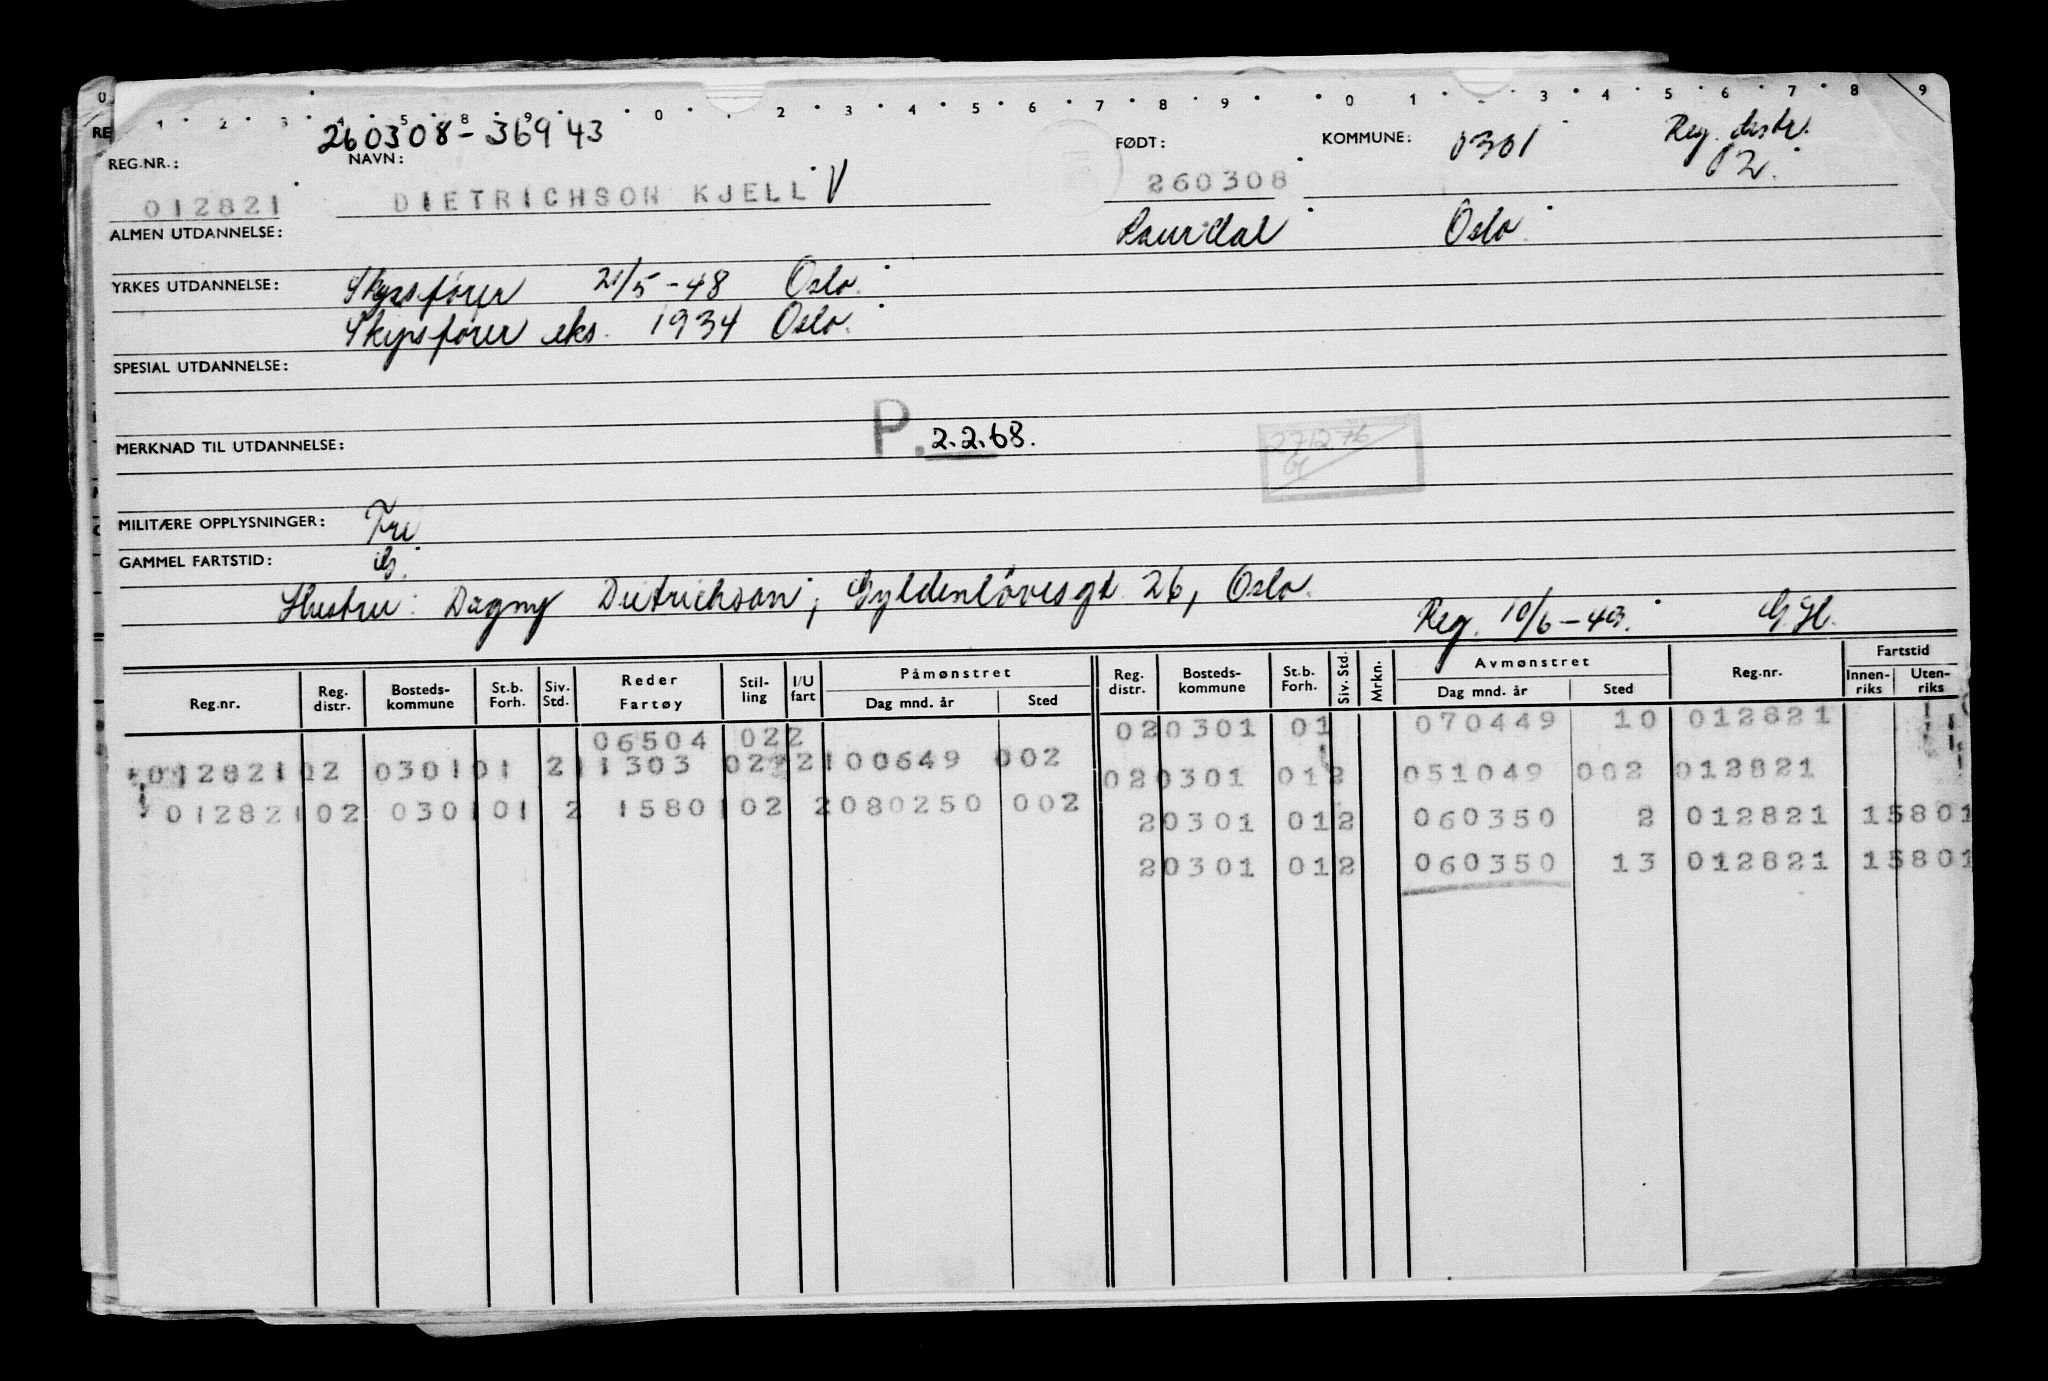 0 1 2 3 4 5 8 9 0 . 2 3 4 5 6 7 8 9 0 1 3 4 5 6 7 8 9
RE
260308-36943
REG.NR.: NAVN: FØDT: KOMMUNE: 0301 Reg. distr.
02.
012821 DIETRICHSON KJELL V 260308
ALMEN UTDANNELSE: Oslo
YRKES UTDANNELSE: Skipsfører 21/5-48 Oslo.
Skipsfører eks. 1934 Oslo.
SPESIAL UTDANNELSE:
P. 2.2.68.
MERKNAD TIL UTDANNELSE:
271276
MILITÆRE OPPLYSNINGER: Fri
GAMMEL FARTSTID:
Hustru: Dagny Dietrichson, Gyldenløvesgt. 26, Oslo.
Reg. 10/6-49. G.H.
Reg.nr. Reg. distr. Bosteds-kommune St.b. Forh. Siv. Std. Reder Fartøy Stil-ling I/U fart Påmønstret Dag mnd. år Sted Reg. distr. Bosteds-kommune St.b. Forh. Siv. Std. Mrkn. Avmønstret Dag mnd. år Sted Reg.nr. Fartstid Innen-riks Uten-riks
06504 022 020301 01 070449 10 012821
01282102 030101 2 11303 0222 100649 002 020301 012 051049 002 012821
01282102 030101 2 15801 02 2080250 002 20301 012 060350 2 012821 15801
20301 012 060350 13 012821 15801